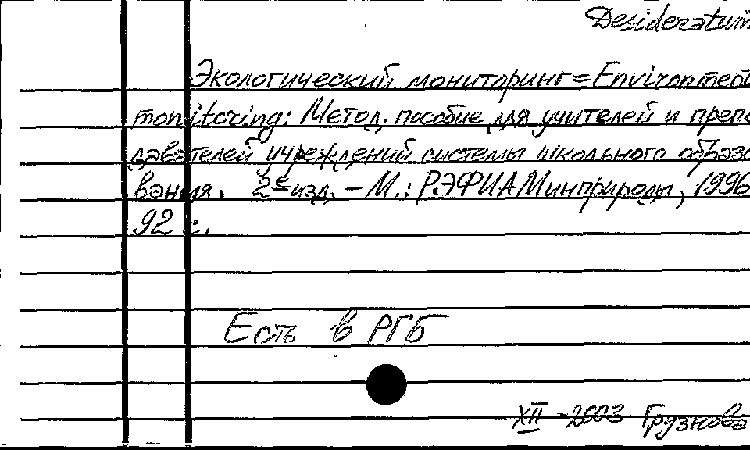 Desideratum
Экологический мониторинг = Environmental
monitoring: Метод. пособие для учителей и препо
давателей учреждений системы школьного образо
вания. 2-е изд. - М.: РЭФИА Минприроды, 1996
92 с.
Есть в РГБ
XII - 2003 Грузнова